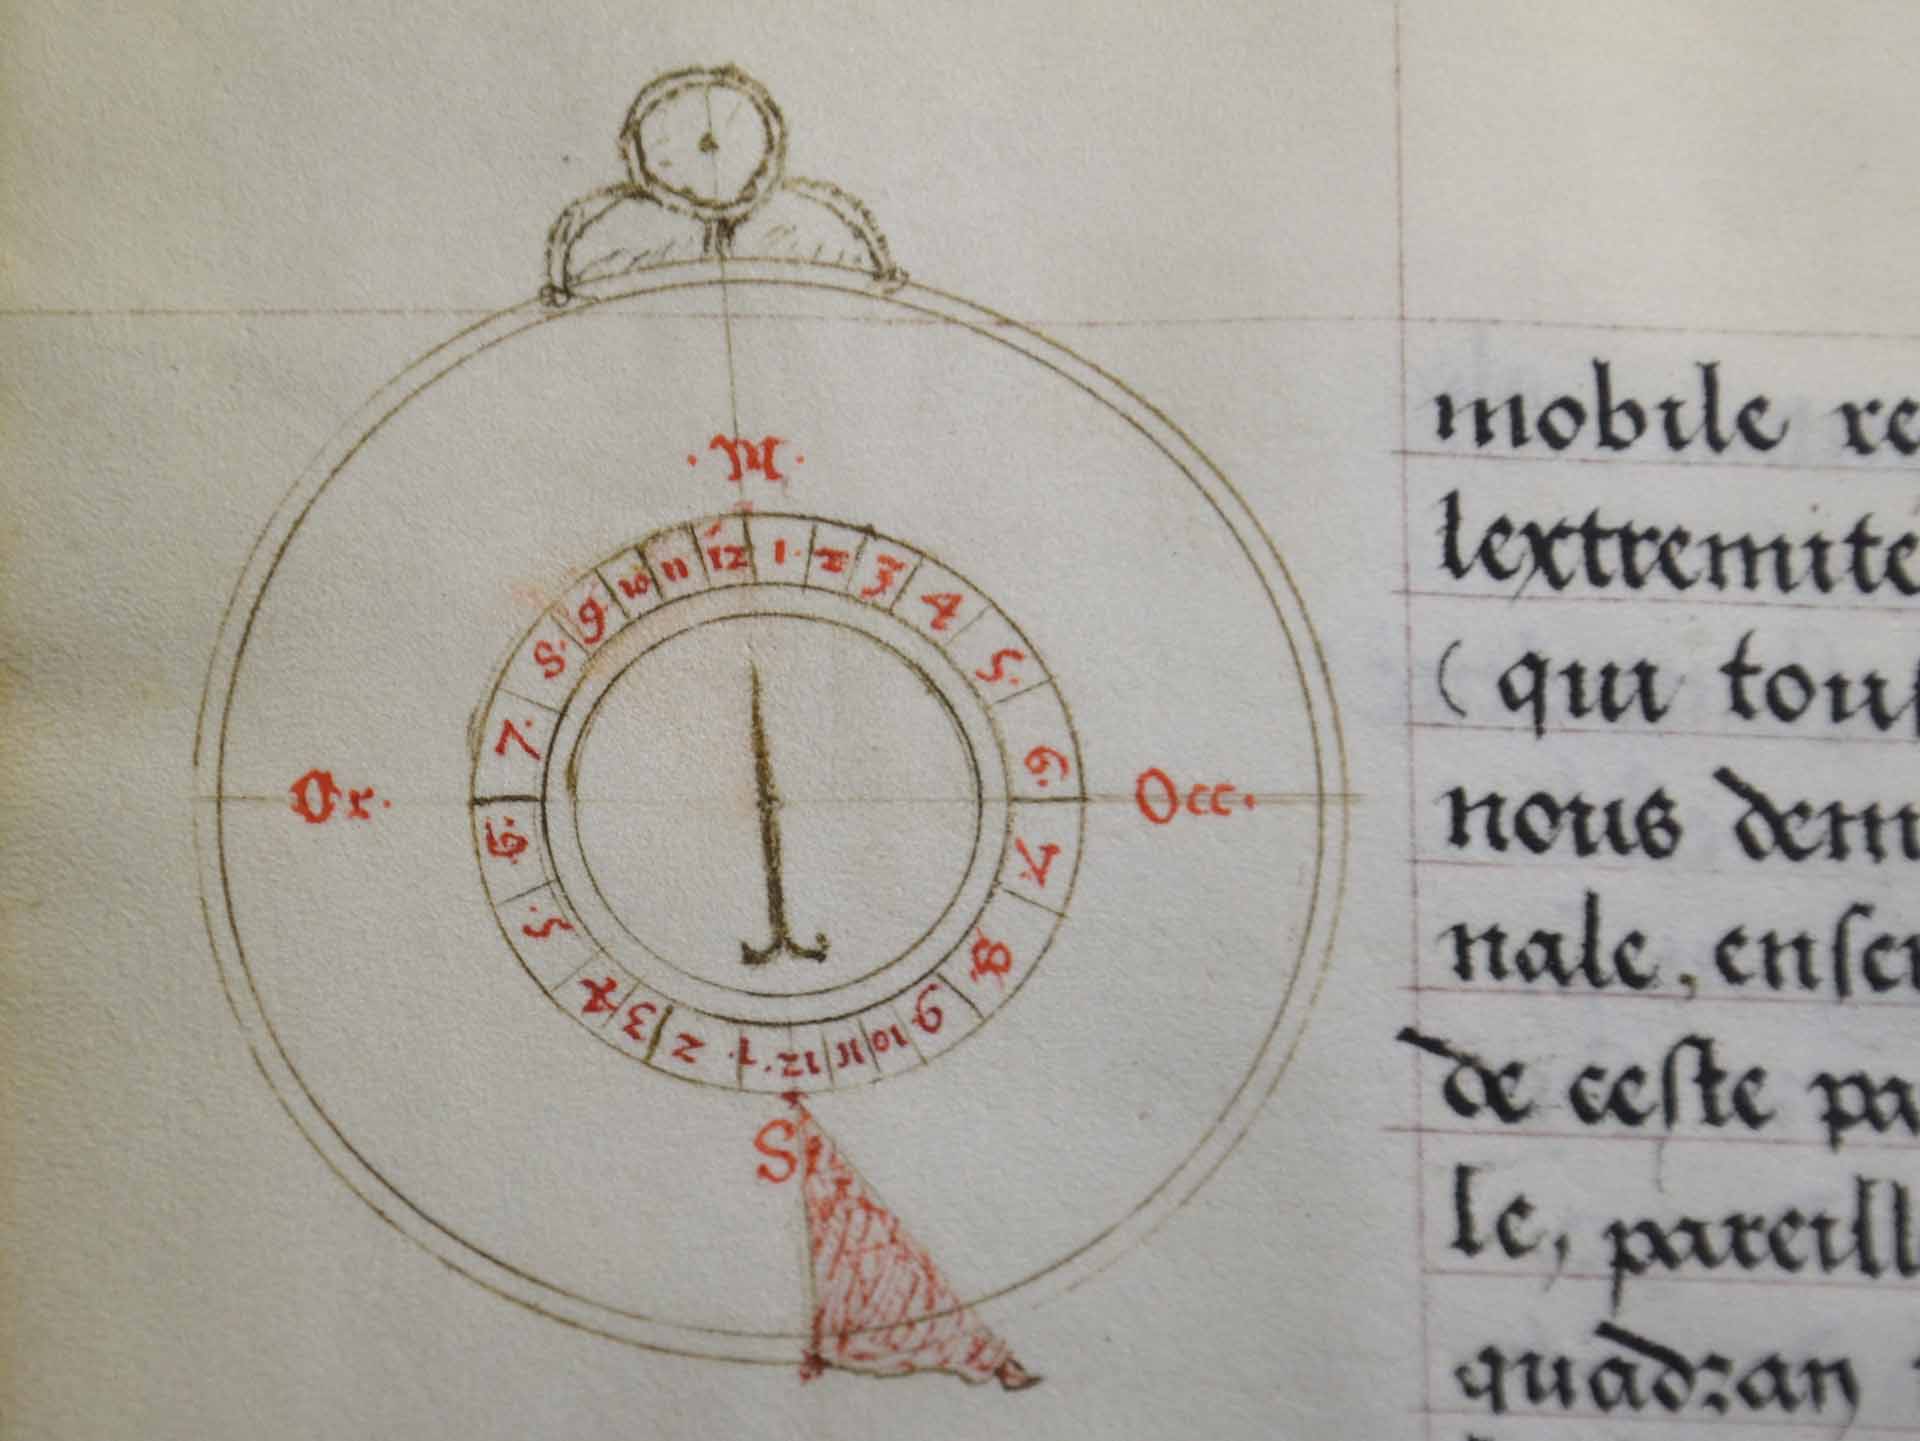 · M ·
12 1· 2 3 4 5· 6· 7· 8· 9· 10 11 12· 1· 2 3 4 5· 6· 7· 8· 9· 10 11
Or· Occ·
S
mobile re
lextremite
( qui touſ
nous dem
nale, enſer
de ceſte pa
le, pareill
quadran